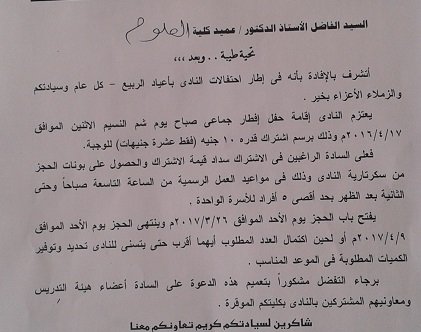 السيد الفاضل الأستاذ الدكتور/ عميد كلية العلوم
تحية طيبة .. وبعد ،،،
أتشرف بالإفادة بأنه فى إطار احتفالات النادى بأعياد الربيع - كل عام وسيادتكم
والزملاء الأعزاء بخير .
يعتزم النادى إقامة حفل إفطار جماعى صباح يوم شم النسيم الاثنين الموافق
٢٠١٦/٤/١٧م وذلك برسم اشتراك قدره ١٠ جنيه (فقط عشرة جنيهات) للوجبة.
فعلى السادة الراغبين فى الاشتراك سداد قيمة الاشتراك والحصول على بونات الحجز
من سكرتارية النادى وذلك فى مواعيد العمل الرسمية من الساعة التاسعة صباحاً وحتى
الثانية بعد الظهر بحد أقصى ٥ أفراد للأسرة الواحدة .
يفتح باب الحجز يوم الأحد الموافق ٢٠١٧/٣/٢٦م وينتهى الحجز يوم الأحد الموافق
٢٠١٧/٤/٩م أو لحين اكتمال العدد المطلوب أيهما أقرب حتى يتسنى للنادى تحديد وتوفير
الكميات المطلوبة فى الموعد المناسب .
برجاء التفضل مشكوراً بتعميم هذه الدعوة على السادة أعضاء هيئة التدريس
ومعاونيهم المشتركين بالنادى بكليتكم الموقرة .
شاكرين لسيادتكم كريم تعاونكم معنا